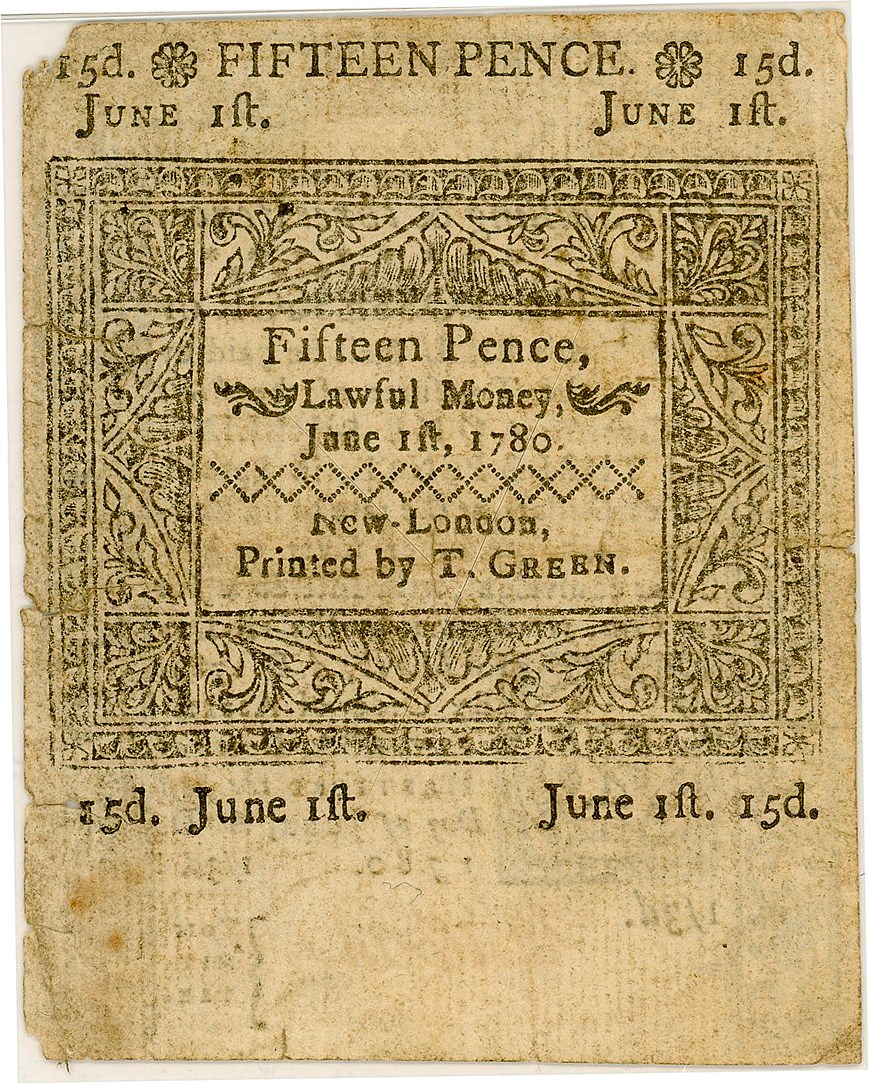 15d. FIFTEEN PENCE. 15d.
JUNE 1ſt. JUNE 1ſt.
Fifteen Pence,
Lawful Money,
June 1ſt, 1780.
New-London,
Printed by T. GREEN.
15d. June 1ſt. June 1ſt. 15d.